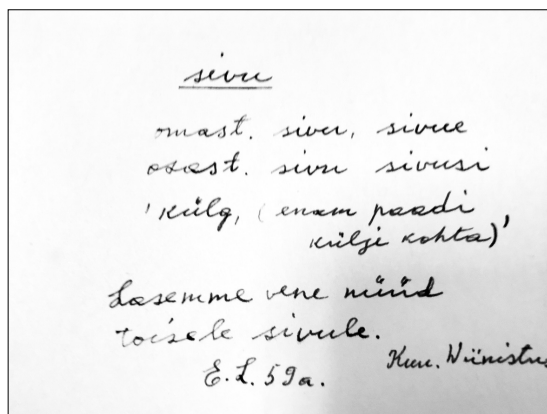 sivu
omast. sivu, sivue
osast. sivu sivusi
'külg, (enam paadi
külje kohta)'
Lasemme vene nüüd
toisele sivule.
E.L. 59a.
Kuu. Wiinistus